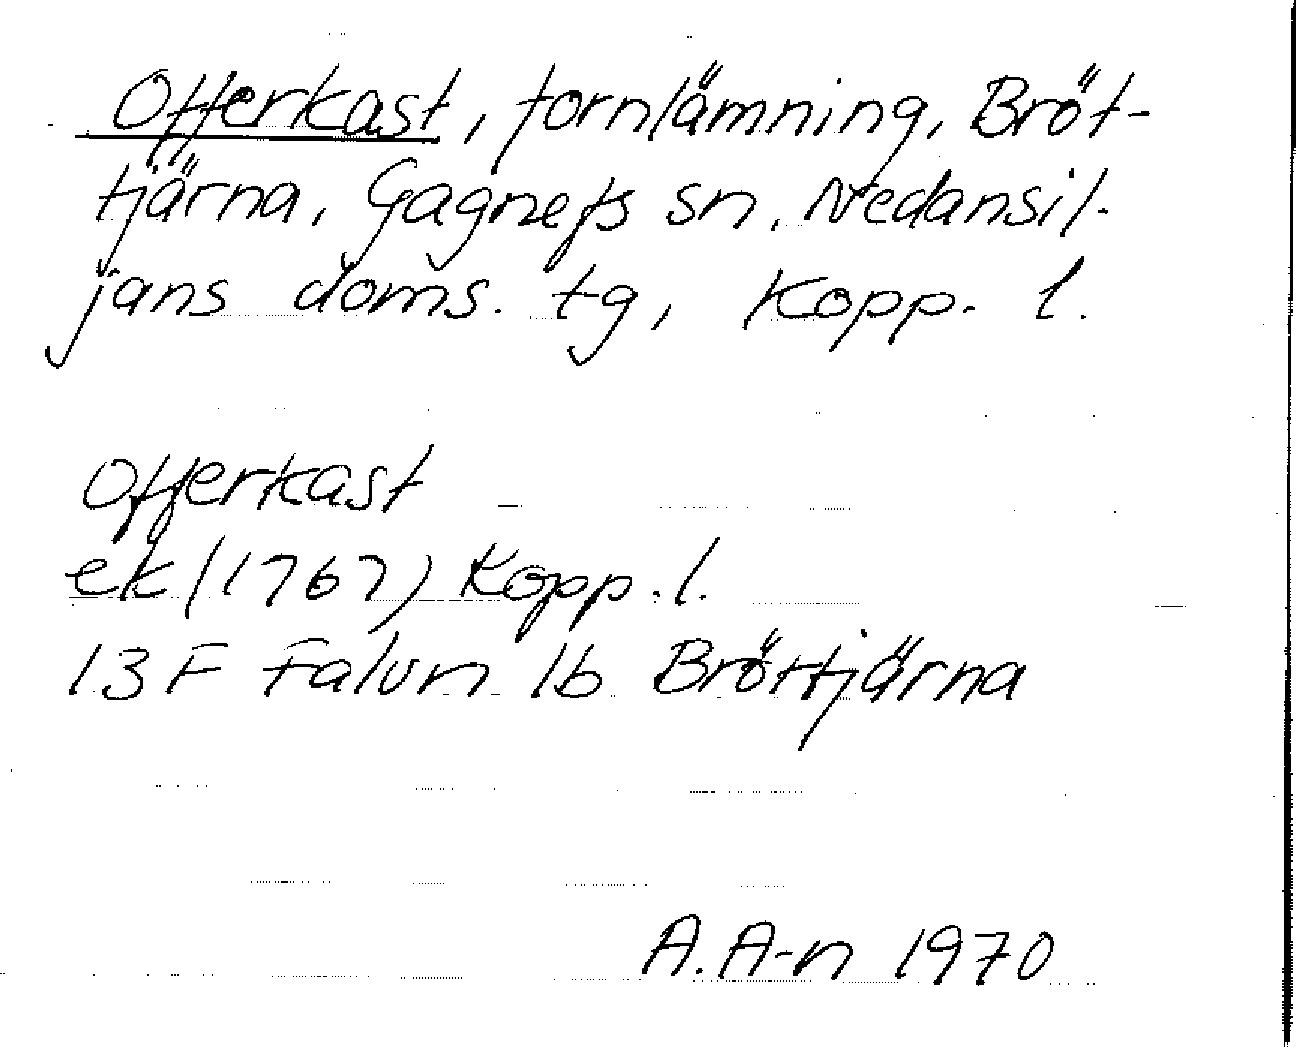 Offerkast, fornlämning, Bröt-
tjärna, Gagnefs sn, Nedansil-
jans doms. tg, Kopp. l.
Offerkast
ek (1767) Kopp. l.
13 F Falun 1b Bröttjärna
A. A-n 1970